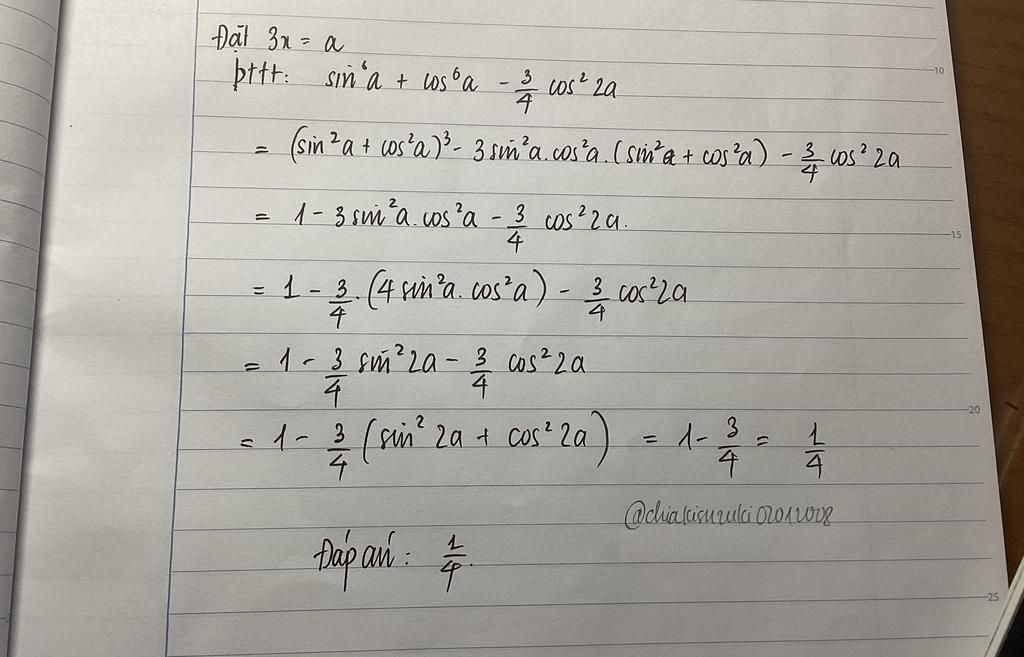 Đặt 3x = a
pttt: sin⁶a + cos⁶a - 3/4 cos²2a
= (sin²a + cos²a)³ - 3sin²a.cos²a.(sin²a + cos²a) - 3/4 cos²2a
= 1 - 3sin²a.cos²a - 3/4 cos²2a.
= 1 - 3/4.(4sin²a.cos²a) - 3/4 cos²2a
= 1 - 3/4 sin²2a - 3/4 cos²2a
= 1 - 3/4 (sin²2a + cos²2a) = 1 - 3/4 = 1/4
@chiakisuzuki02012008
Đáp án: 1/4.
10
15
20
25